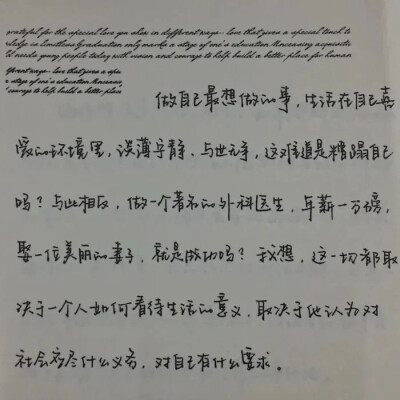 grateful for the special love you show in different ways - love that gives a special touch to
is limitless Graduation only marks a stage of one's education Increasing acquisition
needs young people today with vision and courage to help build a better place for human
fferent ways - love that gives a spe
a stage of one's education Increasing
courage to help build a better place
做自己最想做的事,生活在自己喜
爱的环境里,淡薄宁静、与世无争,这难道是糟蹋自己
吗?与此相反,做一个著名的外科医生,年薪一万磅,
娶一位美丽的妻子,就是成功吗?我想,这一切都取
决于一个人如何看待生活的意义,取决于他认为对
社会应尽什么义务,对自己有什么要求。